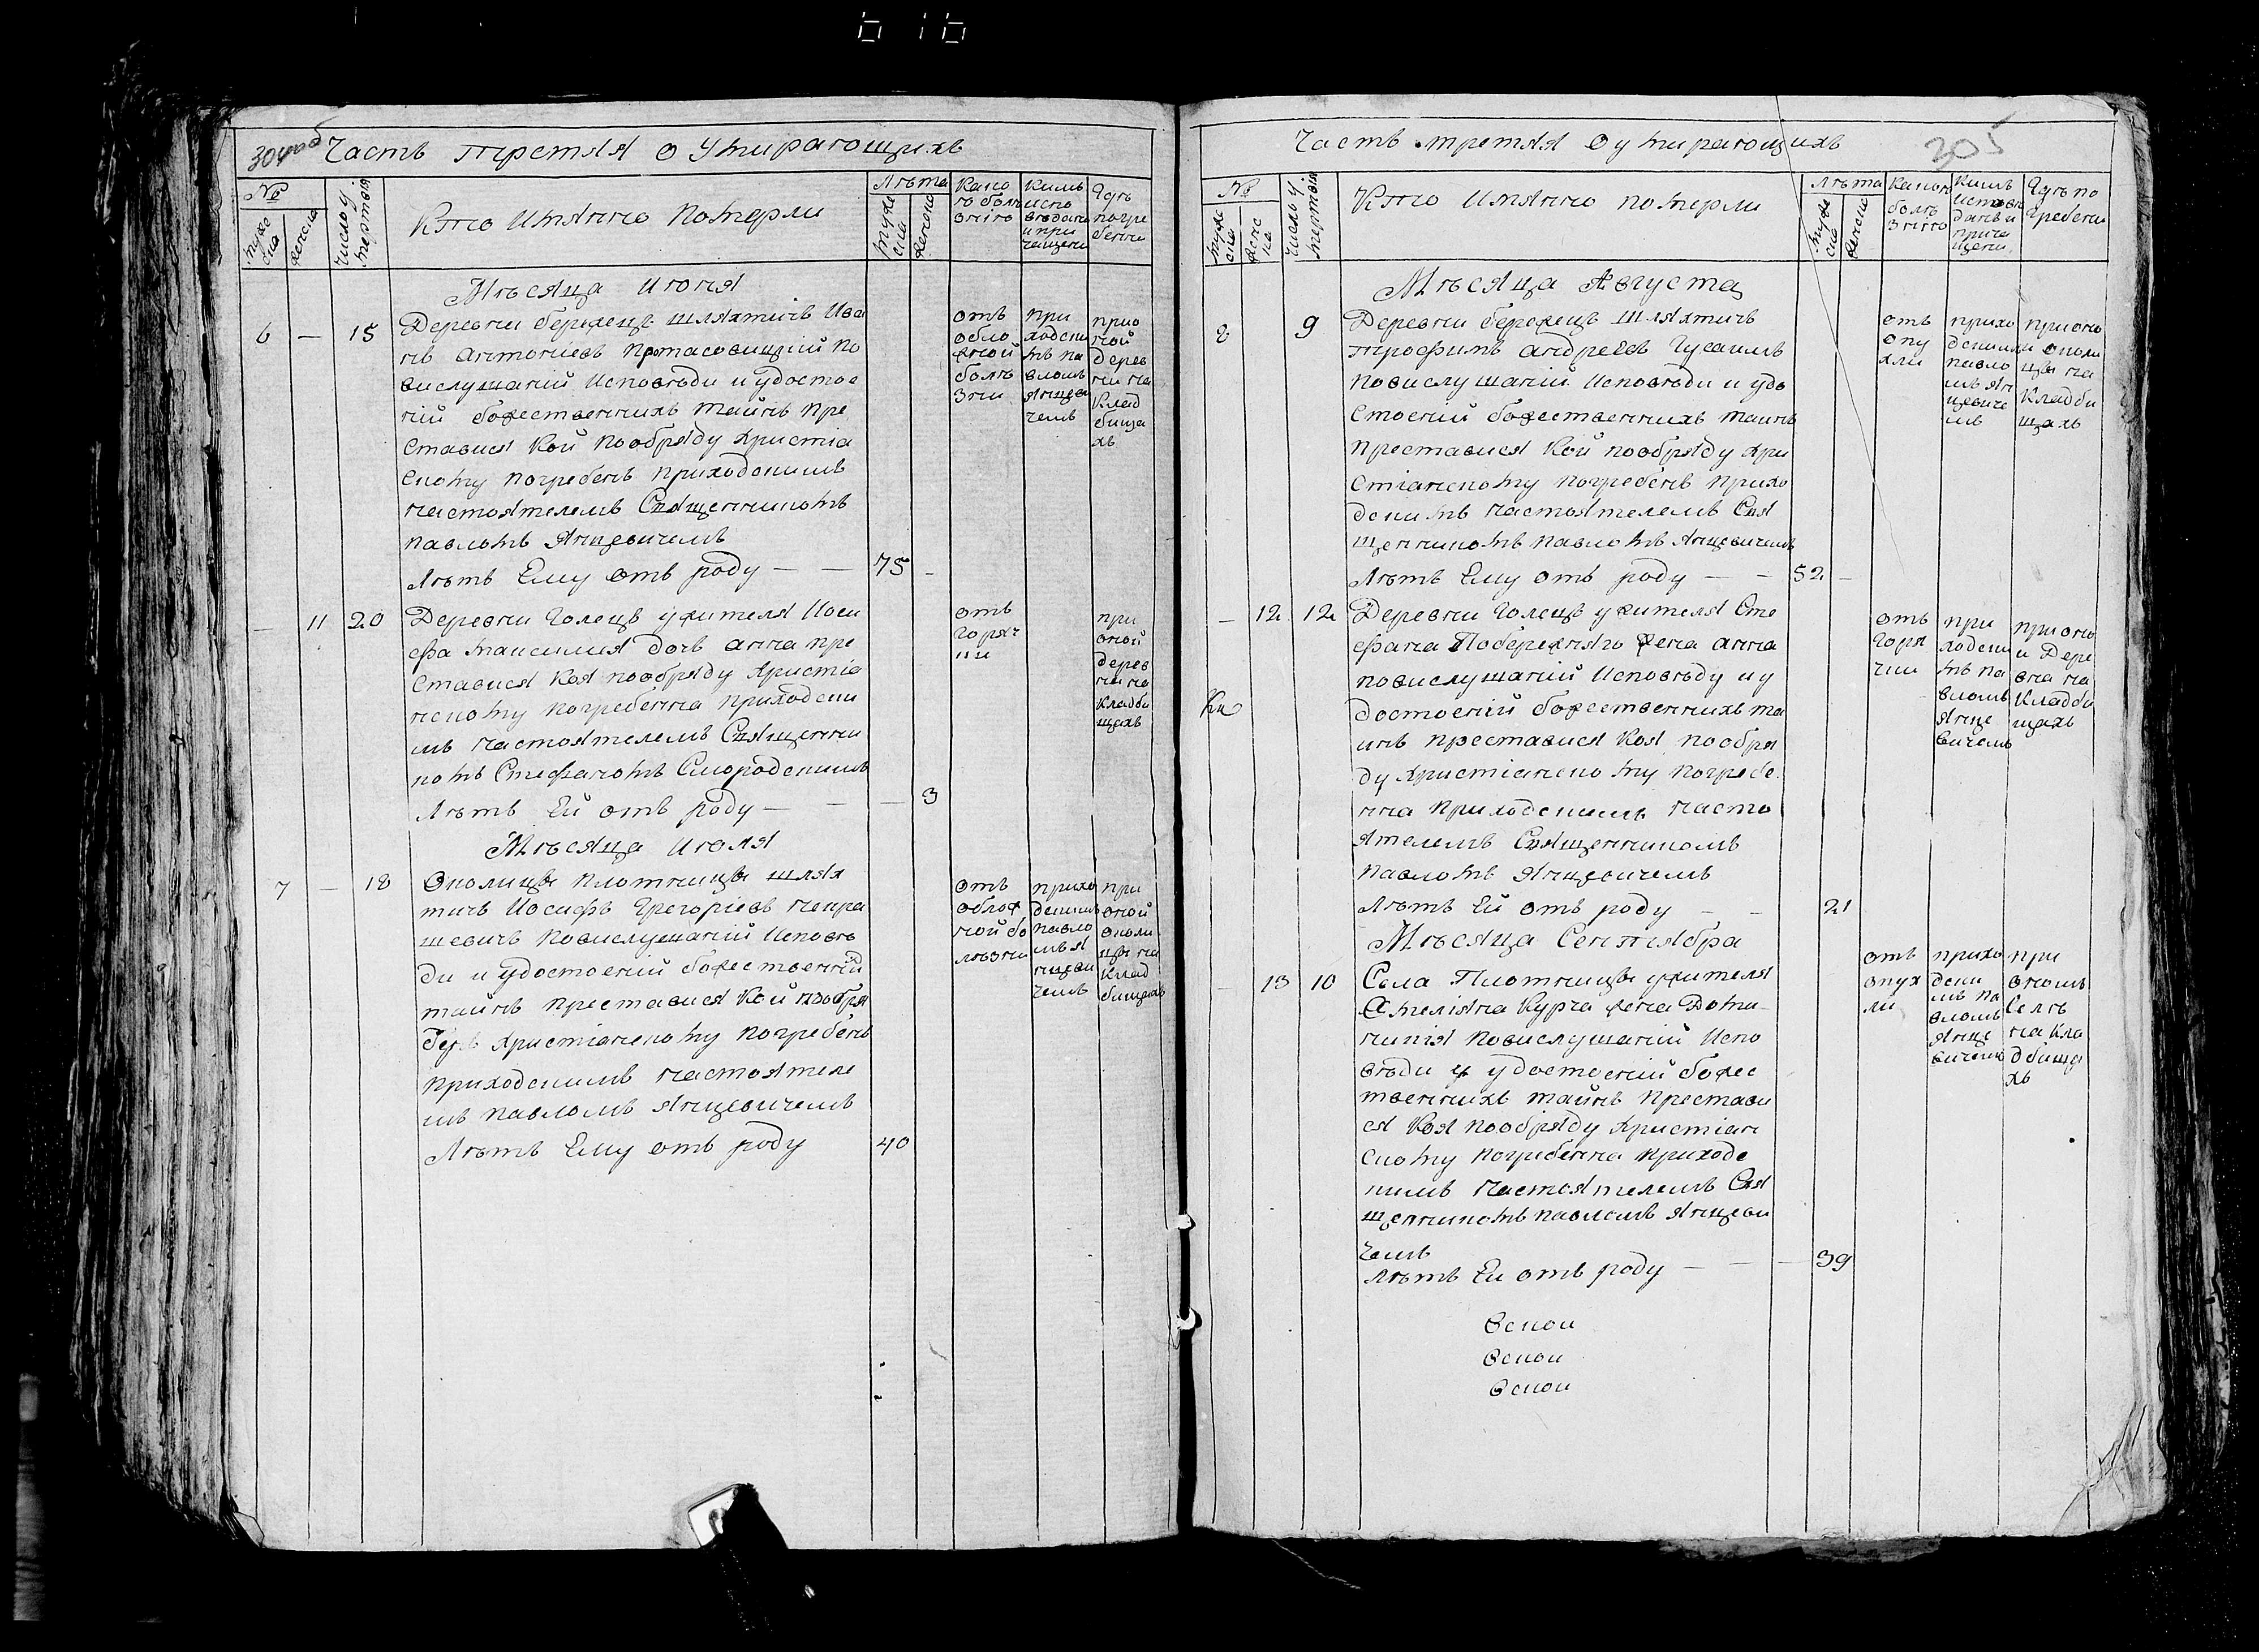 304 об
Часть третяя о умирающихъ
№
мужеска
женска
Число умертвія
Кто имянно померли
Лѣта
мужеска
женска
Како
ю болѣ
знію
Кимъ
испо
вѣдани
и при
чащени
Гдѣ
погре
бенни
Мѣсяца июня
6 — 15
Деревни бережецъ шляхтичъ Ива
нъ антоніевъ Протасовицкій по
вислушаній исповѣди и удостое
ній божественнихъ тайнъ пре
ставися кой пообряду христіа
скому погребенъ приходскимъ
настоятелемъ Священникомъ
павломъ Янцевичемъ
Лѣтъ Ему отъ роду — — 75 —
отъ
обло
жной
болѣ
зни
при
ходски
мъ па
вломъ
Янцеви
чемъ
прио
ной
дерев
ни на
клад
бища
хъ
— 11 20
Деревни Голецъ жителя Иоси
фа максимця дочъ анна пре
ставися коя пообряду христіа
нскому погребенна приходски
мъ настоятелемъ Священни
комъ Стефаномъ Смородскимъ
Лѣтъ Ей отъ роду — — — 3
отъ
горяч
ки
при
оной
дерев
ни на
кладби
щахъ
Мѣсяца июля
7 — 18
Околицы плотницы шлях
тичъ Иосифъ Грегоріевъ некра
шевичъ повислушаній исповѣ
ди и удостоеній божественній
тайнъ преставися кой пообря
христіанскому погребенъ
приходскимъ настоятеле
мъ павломъ Янцевичемъ
Лѣтъ Ему отъ роду 40
отъ
облож
ной бо
лѣзни
прихо
дскимъ
павло
мъ я
нцеви
чемъ
при
оной
околи
цы на
клад
бищахъ
Часть третяя о умирающихъ
305
№
мужеска
женска
Число умертвія
Кто имянно померли
Лѣта
мужеска
женска
Какою
болѣ
знію
Кимъ
исповѣ
дани и
прича
щени
Гдѣ по
гребени
Мѣсяца Августа
8 9
Деревни бережецъ шляхтичъ
трофимъ андреевъ Гусаимъ
повислушаній исповѣди и удо
стоеній божественнихъ таинъ
преставися кой пообряду хри
стіанскому погребенъ прихо
дскимъ настоятелемъ Свя
щенникомъ павломъ Янцевичемъ
Лѣтъ Ему отъ роду — — 52 —
отъ
опу
хли
прихо
дскимъ
павло
мъ Ян
цевиче
мъ
прионо
и околи
цы на
кладби
щахъ
— 12 12
Деревни Голецъ жителя Сте
фана Побережняго жена анна
повислушаній исповѣду и у
достоеній божественнихъ та
инъ преставися коя пообря
ду христіанскому погребе
нна приходскимъ насто
ятелемъ Священникомъ
павломъ Янцевичемъ
Лѣтъ Ей отъ роду — — 21
отъ
горя
чки
при
ходски
мъ па
вломъ
Янце
вичемъ
прионо
и дере
вна на
кладби
щахъ
Мѣсяца Сентября
— 13 10
Села Плотницы жителя
Омеляна Курча жена Дома-
никія повислушаній испо
вѣди и удостоеній божес
твеннихъ тайнъ престави
ся коя пообряду христіан
скому погребенна приходс
кимъ настоятелемъ Свя
щенникомъ павломъ янцеви
чемъ
Лѣтъ Ей отъ роду — — — 39
отъ
опух
ли
прихо
дски
мъ па
вломъ
Янце
вичемъ
при
ономъ
селѣ
на кла
дбища
хъ
Оспои
Оспои
Оспои